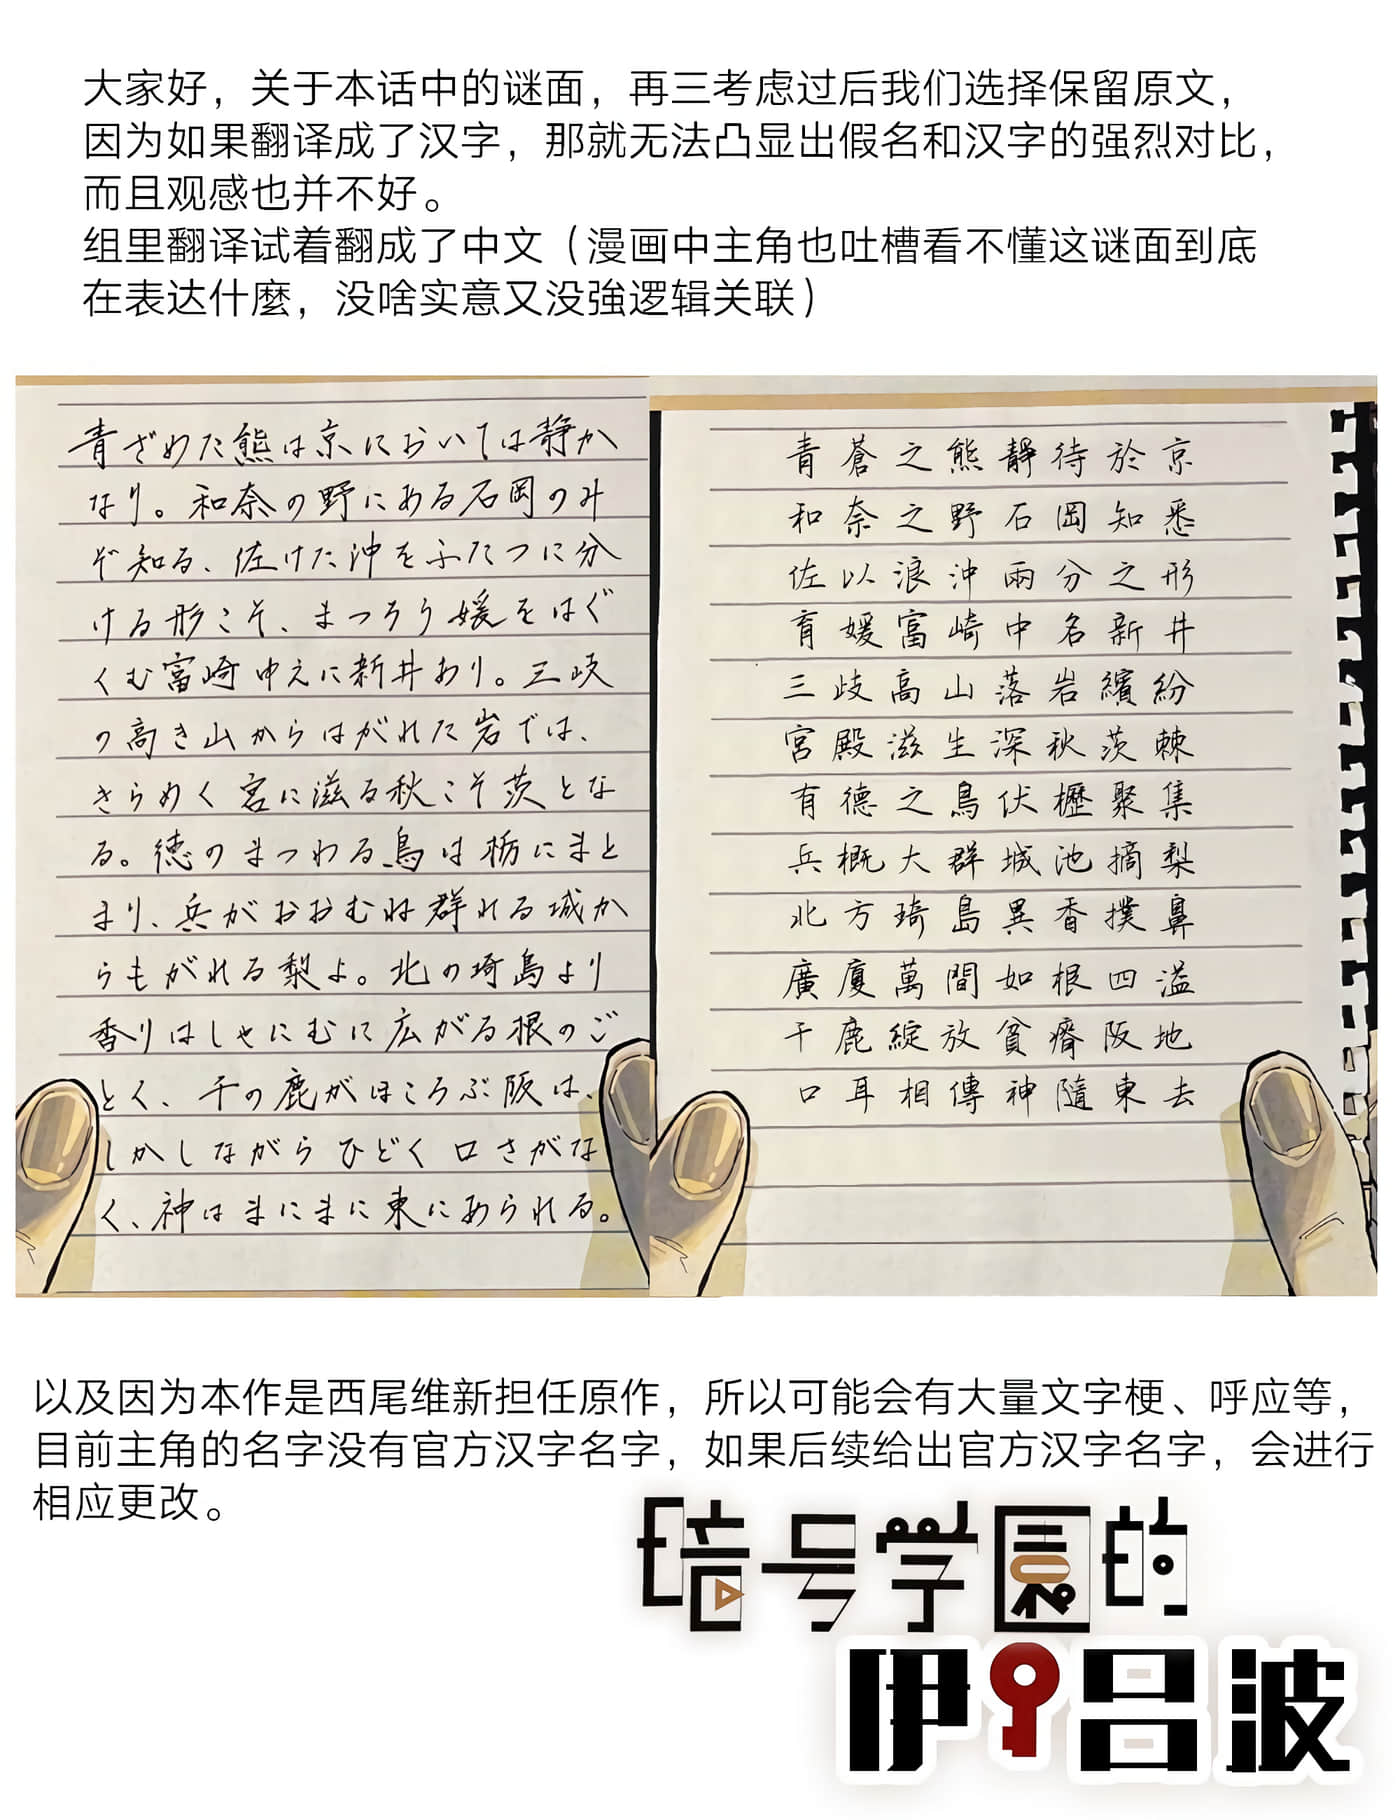 大家好，关于本话中的谜面，再三考虑过后我们选择保留原文，
因为如果翻译成了汉字，那就无法凸显出假名和汉字的强烈对比，
而且观感也并不好。
组里翻译试着翻成了中文（漫画中主角也吐槽看不懂这谜面到底
在表达什麼，没啥实意又没強逻辑关联）
青ざめた熊は京においては静か
なり。和奈の野にある石岡のみ
ぞ知る、佐けた沖をふたつに分
ける形こそ、まつろう媛をはぐ
くむ富崎中えに新井あり。三岐
の高き山からはがれた岩では、
きらめく宮に滋る秋こそ茨とな
る。徳のまつわる鳥は栃にまと
まり、兵がおおむね群れる城か
らもがれる梨よ。北の埼島より
香りはしゃにむに広がる根のご
とく、千の鹿がほころぶ阪は、
しかしながらひどく口さがな
く、神はまにまに東にあられる。
青蒼之熊靜待於京
和奈之野石岡知悉
佐以浪沖兩分之形
育媛富崎中名新井
三歧高山落岩繽紛
宮殿滋生深秋茨棘
有德之鳥伏櫪聚集
兵概大群城池摘梨
北方琦島異香撲鼻
廣廈萬間如根四溢
千鹿綻放貧瘠阪地
口耳相傳神隨東去
以及因为本作是西尾维新担任原作，所以可能会有大量文字梗、呼应等，
目前主角的名字没有官方汉字名字，如果后续给出官方汉字名字，会进行
相应更改。
暗号学園的
伊呂波